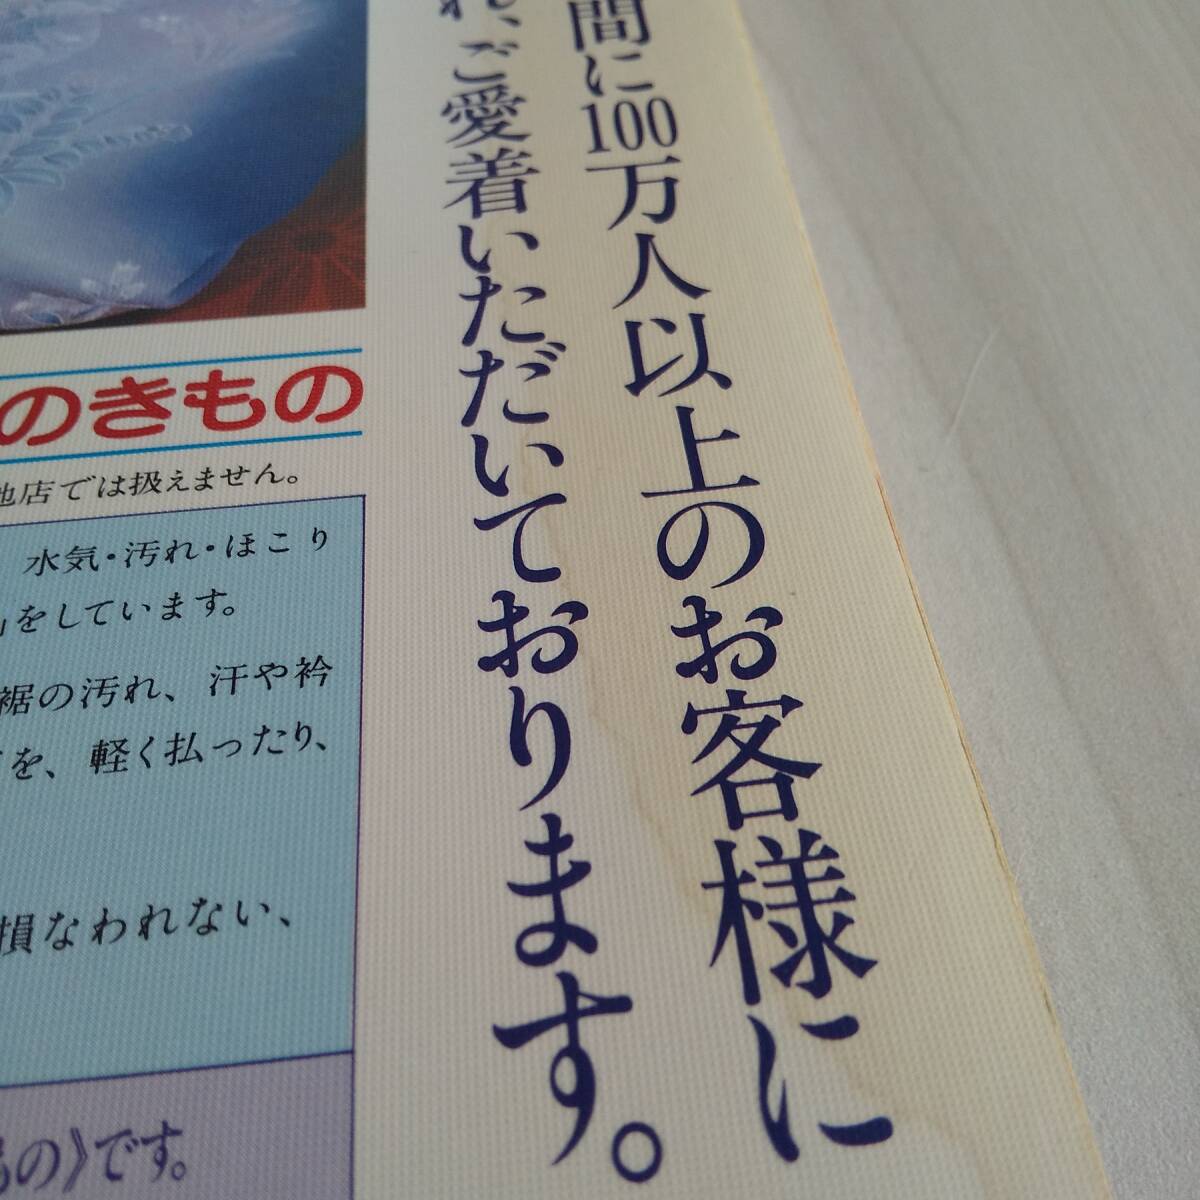 間に100万人以上のお客様に
れ、ご愛着いただいております。
のきもの
他店では扱えません。
水気・汚れ・ほこり
をしています。
裾の汚れ、汗や衿
を、軽く払ったり、
損なわれない、
もの》です。